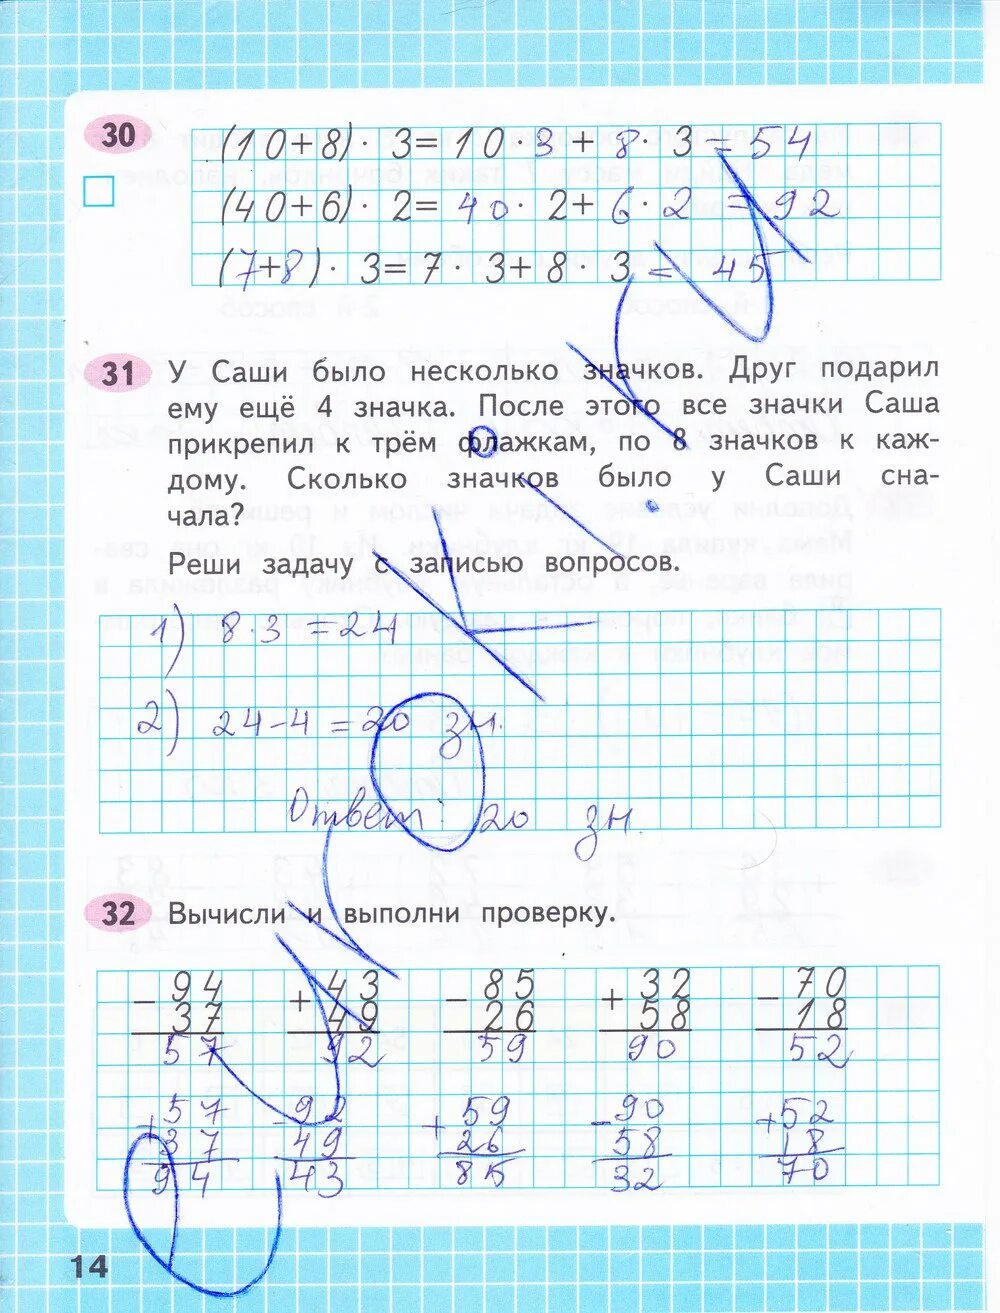 30
(10+8)· 3=10·3+8·3=54
(40+6)· 2=40·2+6·2=92
(7+8)· 3=7·3+8·3=45
31 У Саши было несколько значков. Друг подарил
ему ещё 4 значка. После этого все значки Саша
прикрепил к трём флажкам, по 8 значков к каж-
дому. Сколько значков было у Саши сна-
чала?
Реши задачу с записью вопросов.
1) 8·3=24
2) 24-4=20 зн.
Ответ: 20 зн.
32 Вычисли и выполни проверку.
-94 +43 -85 +32 -70
37 49 26 58 18
57 92 59 90 52
+57 -92 +59 -90 +52
37 49 26 58 18
94 43 85 32 70
14